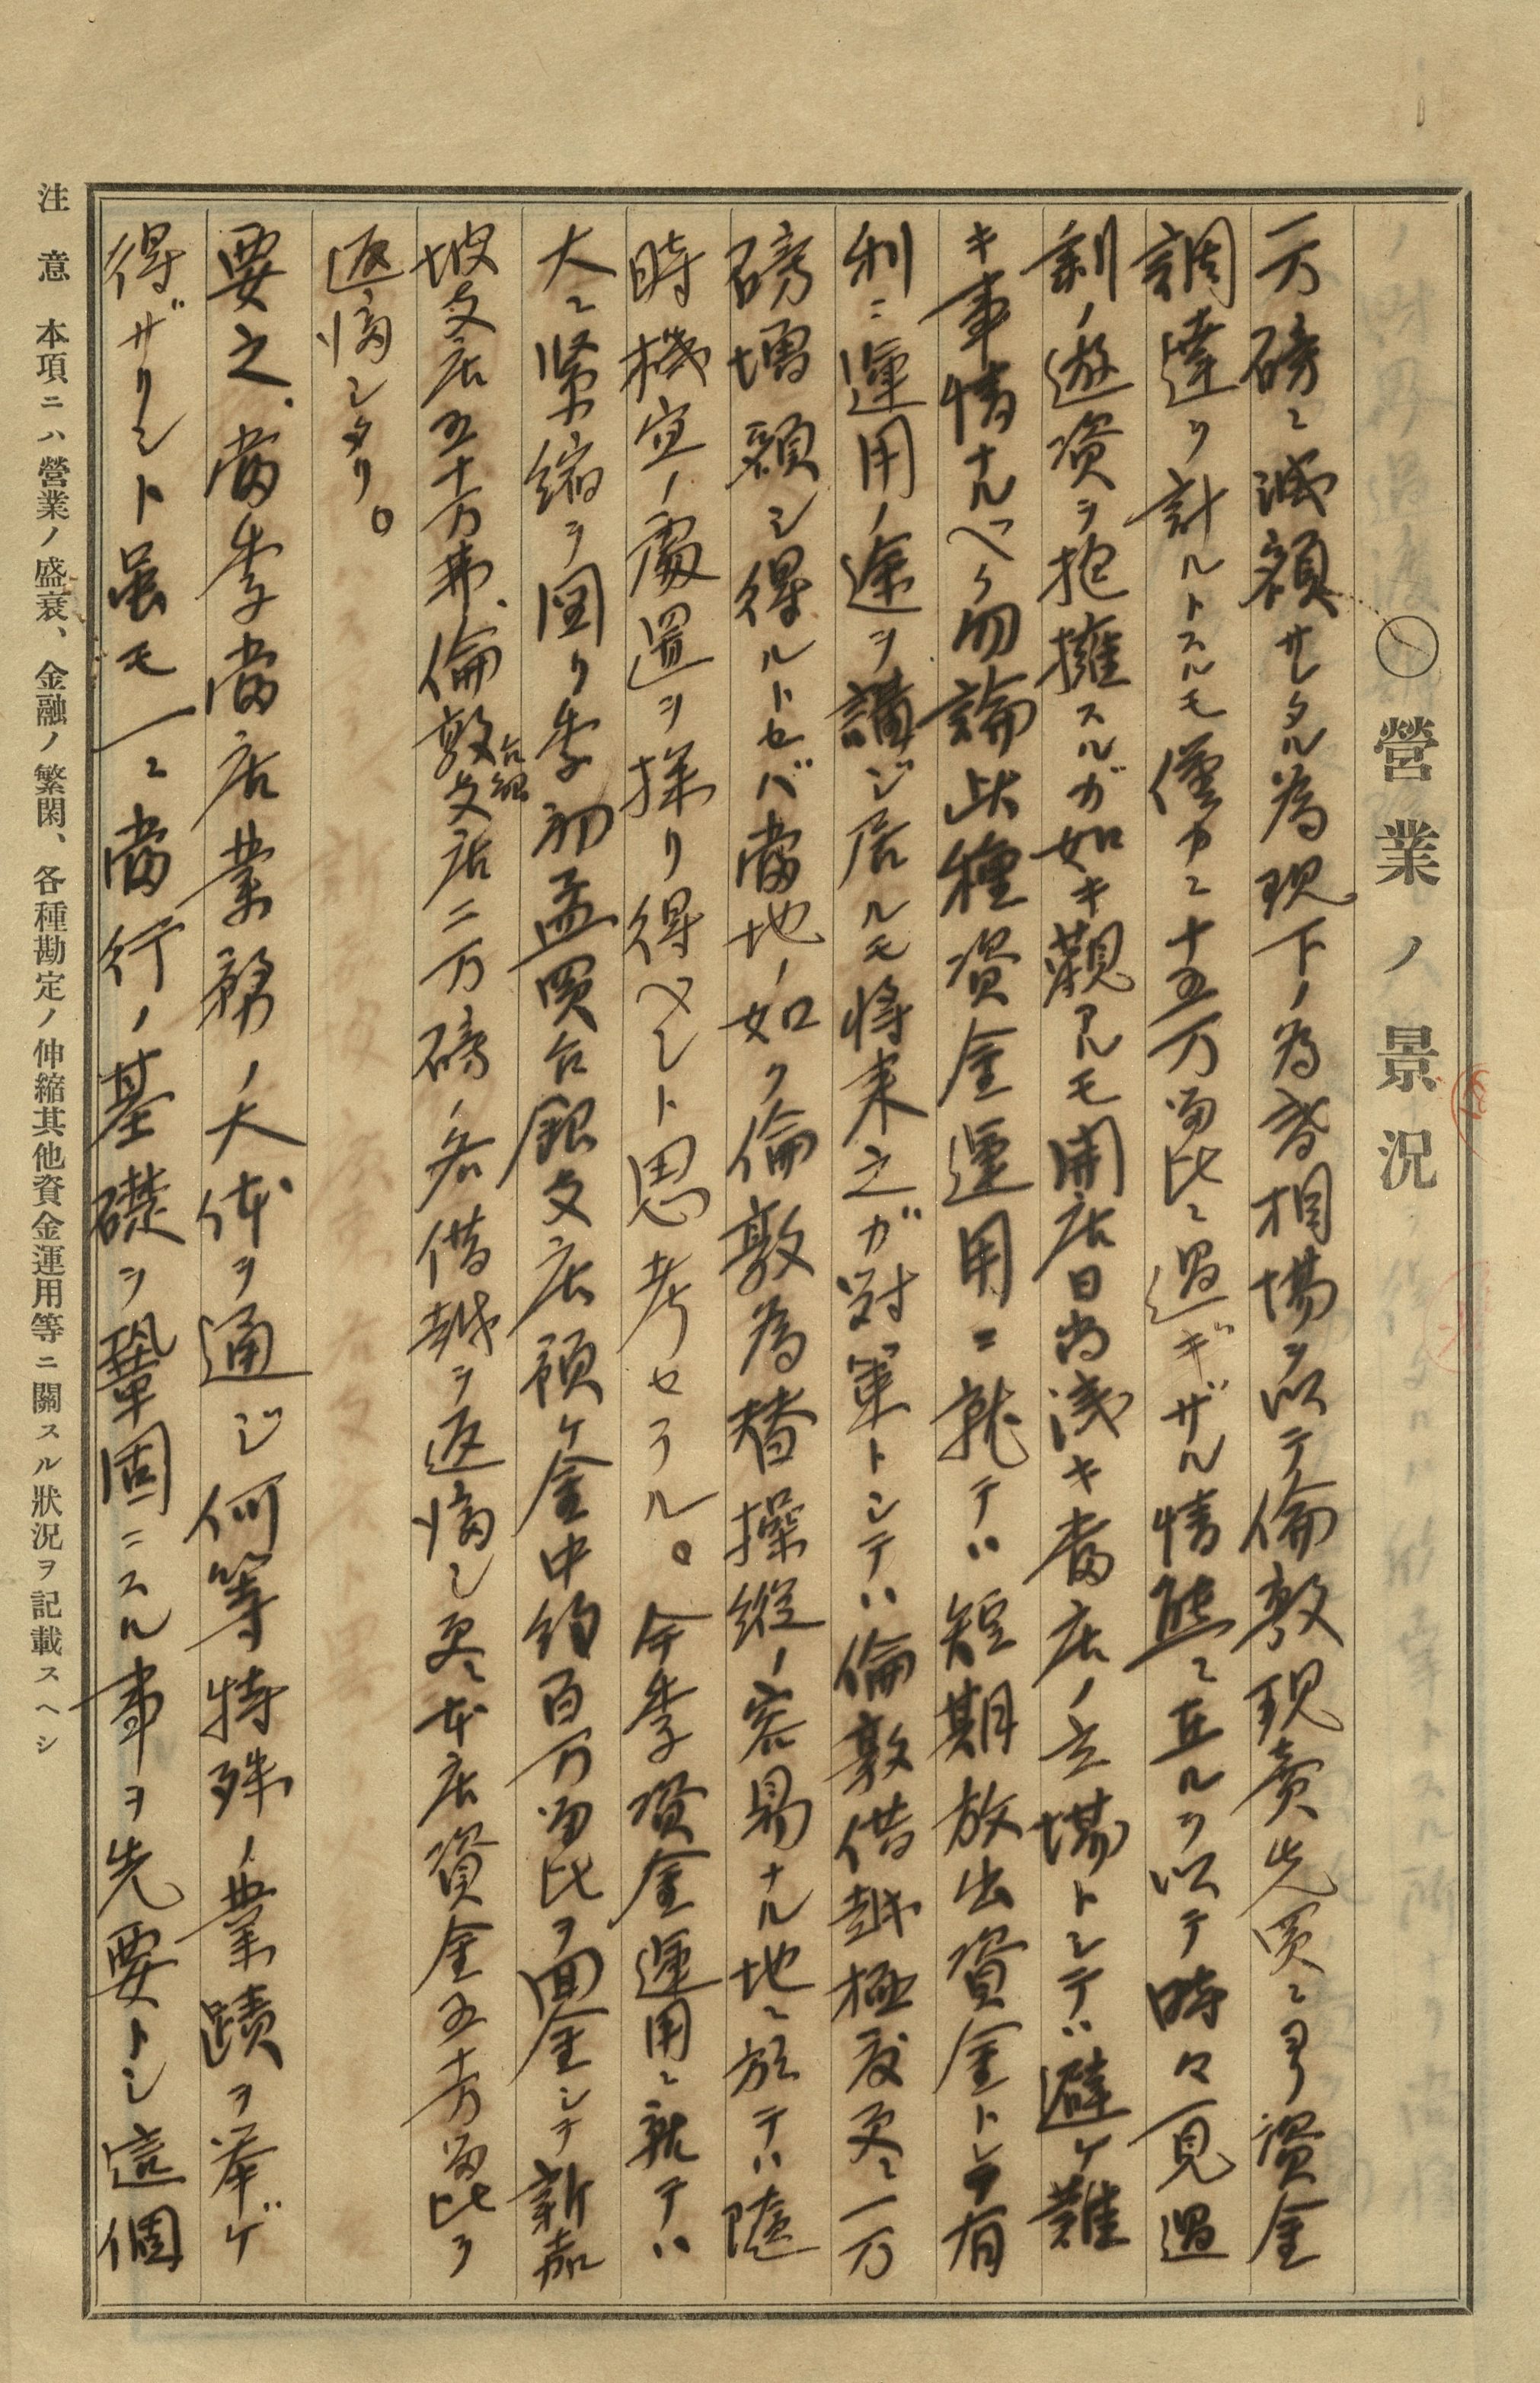 〇營業ノ景況
一万磅ニ減額サレタル為現下ノ為替相場ヲ以テ倫敦現賣先買ニヨリ資金
調達ヲ計ルトスルモ僅カニ十五万留比ニ過ギザル情態ニ在ルヲ以テ時々一見過
剰ノ遊資ヲ抱擁スルガ如キ觀アルモ開店日尚浅キ當店ノ立場トシテハ避ケ難
キ事情ナルベク勿論此種資金運用ニ就テハ短期放出資金トシテ有
利ニ運用ノ途ヲ講ジ居ルモ将来之ガ對策トシテハ倫敦借越極度更ニ一万
磅増額シ得ルトセバ當地ノ如ク倫敦為替操縦ノ容易ナル地ニ於テハ随
時機宜ノ處置ヲ採リ得ベシト思考セラル。今季資金運用ニ就テハ
大ニ緊縮ヲ図リ季初孟買台銀支店預ケ金中約百万留比ヲ回金シテ新嘉
坡支店五十万弗、倫敦台銀支店二万磅ノ各借越ヲ返済シ更ニ本店資金五十万留比ヲ
返済シタリ。
要之、當季當店業務ノ大体ヲ通ジ何等特殊ノ業蹟ヲ挙ゲ
得ザリシト虽モ一ニ當行ノ基礎ヲ鞏固ニスル事ヲ先要トシ這個
注意　本項ニハ營業ノ盛衰、金融ノ繁閑、各種勘定ノ伸縮其他資金運用等ニ關スル狀況ヲ記載スヘシ